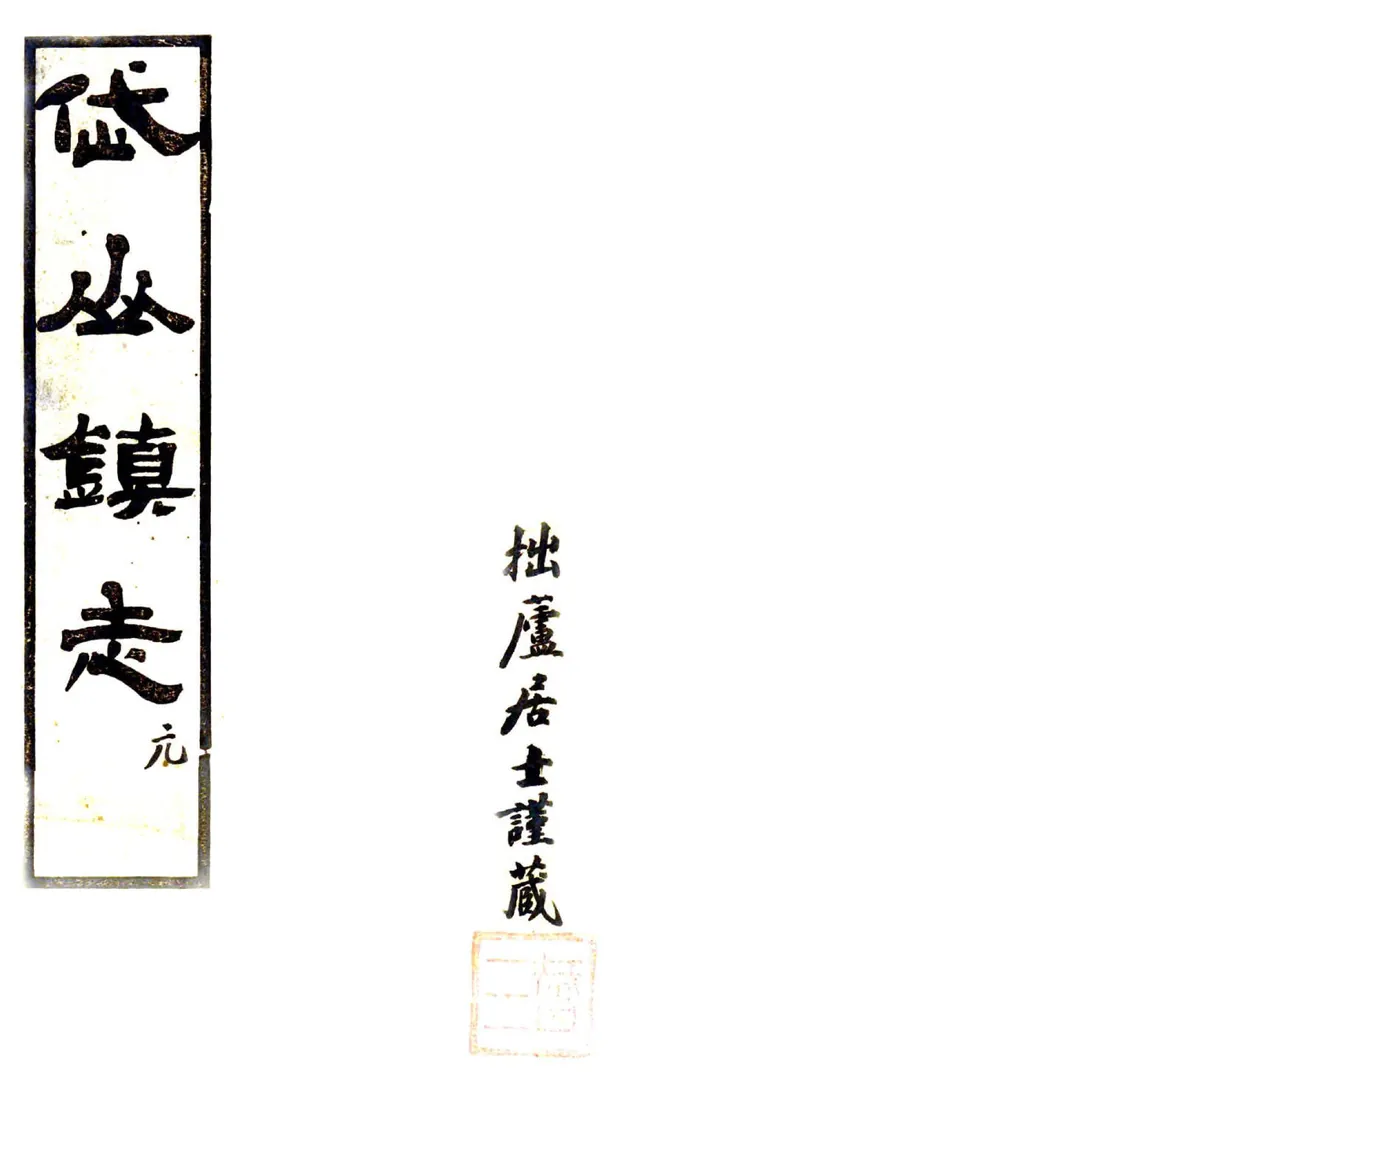 岱山鎮志
元
拙蘆居士謹藏